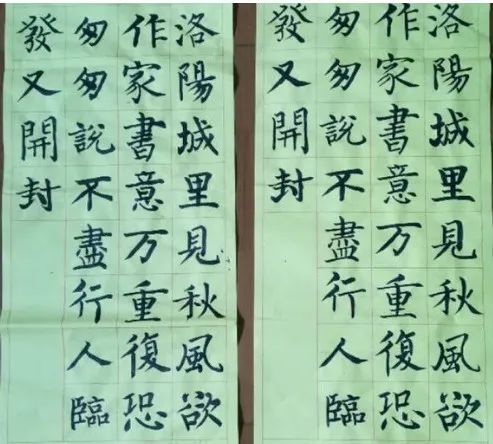 洛陽城里見秋風欲
作家書意万重復恐
匆匆説不盡行人臨
發又開封
洛陽城里見秋風欲
作家書意万重復恐
匆匆説不盡行人臨
發又開封